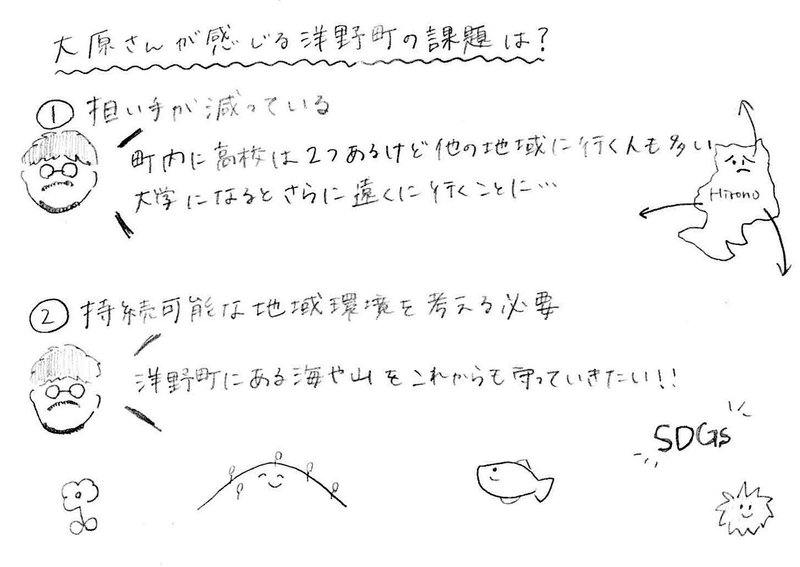 大原さんが感じる洋野町の課題は?
① 担い手が減っている
町内に高校は2つあるけど他の地域に行く人も多い
大学になるとさらに遠くに行くことに…
Hirono
② 持続可能な地域環境を考える必要
洋野町にある海や山をこれからも守っていきたい!!
SDGs